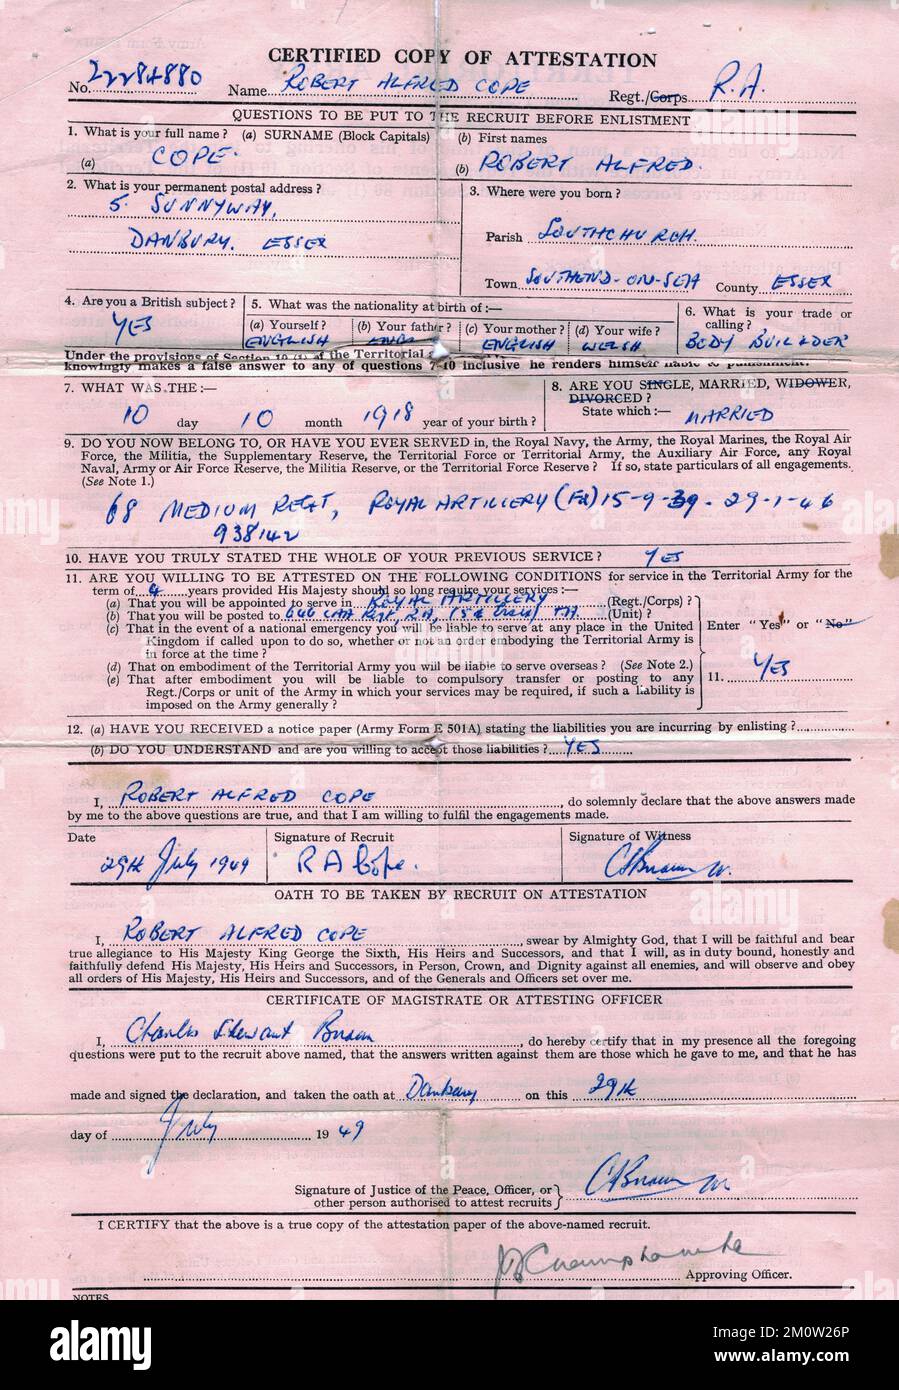 CERTIFIED COPY OF ATTESTATION
No. 22284880 Name ROBERT ALFRED COPE Regt./Corps R.A.
QUESTIONS TO BE PUT TO THE RECRUIT BEFORE ENLISTMENT
1. What is your full name? (a) SURNAME (Block Capitals) (b) First names
(a) COPE. (b) ROBERT ALFRED.
2. What is your permanent postal address? 3. Where were you born?
5. SUNNYWAY,
DANBURY. ESSEX Parish SOUTHCHURCH.
Town SOUTHEND-ON-SEA County ESSEX
4. Are you a British subject? 5. What was the nationality at birth of:— 6. What is your trade or calling?
YES (a) Yourself? (b) Your father? (c) Your mother? (d) Your wife?
ENGLISH ENGLISH WELSH BODY BUILDER
Under the provisions of Section 10 (1) of the Territorial
knowingly makes a false answer to any of questions 7-10 inclusive he renders himself liable to punishment.
7. WHAT WAS THE:— 8. ARE YOU SINGLE, MARRIED, WIDOWER,
DIVORCED?
10 day 10 month 1918 year of your birth? State which:— MARRIED
9. DO YOU NOW BELONG TO, OR HAVE YOU EVER SERVED in, the Royal Navy, the Army, the Royal Marines, the Royal Air
Force, the Militia, the Supplementary Reserve, the Territorial Force or Territorial Army, the Auxiliary Air Force, any Royal
Naval, Army or Air Force Reserve, the Militia Reserve, or the Territorial Force Reserve? If so, state particulars of all engagements.
(See Note 1.)
68 MEDIUM REGT, ROYAL ARTILLERY 15-9-39 - 29-1-46
938142
10. HAVE YOU TRULY STATED THE WHOLE OF YOUR PREVIOUS SERVICE? YES
11. ARE YOU WILLING TO BE ATTESTED ON THE FOLLOWING CONDITIONS for service in the Territorial Army for the
term of 4 years provided His Majesty should so long require your services:—
(a) That you will be appointed to serve in ROYAL ARTILLERY (Regt./Corps)?
(b) That you will be posted to 646 Regt, RA, TA (Unit)?
(c) That in the event of a national emergency you will be liable to serve at any place in the United
Kingdom if called upon to do so, whether or not an order embodying the Territorial Army is
in force at the time?
(d) That on embodiment of the Territorial Army you will be liable to serve overseas? (See Note 2.)
(e) That after embodiment you will be liable to compulsory transfer or posting to any
Regt./Corps or unit of the Army in which your services may be required, if such a liability is
imposed on the Army generally?
Enter "Yes" or "No"
11. YES
12. (a) HAVE YOU RECEIVED a notice paper (Army Form E 501A) stating the liabilities you are incurring by enlisting?
(b) DO YOU UNDERSTAND and are you willing to accept those liabilities? YES
I, ROBERT ALFRED COPE, do solemnly declare that the above answers made
by me to the above questions are true, and that I am willing to fulfil the engagements made.
Date Signature of Recruit Signature of Witness
29th July 1949 R A Cope.
OATH TO BE TAKEN BY RECRUIT ON ATTESTATION
I, ROBERT ALFRED COPE, swear by Almighty God, that I will be faithful and bear
true allegiance to His Majesty King George the Sixth, His Heirs and Successors, and that I will, as in duty bound, honestly and
faithfully defend His Majesty, His Heirs and Successors, in Person, Crown, and Dignity against all enemies, and will observe and obey
all orders of His Majesty, His Heirs and Successors, and of the Generals and Officers set over me.
CERTIFICATE OF MAGISTRATE OR ATTESTING OFFICER
I, Charles Stewart, do hereby certify that in my presence all the foregoing
questions were put to the recruit above named, that the answers written against them are those which he gave to me, and that he has
made and signed the declaration, and taken the oath at Danbury on this 29th
day of July 1949
Signature of Justice of the Peace, Officer, or
other person authorised to attest recruits
I CERTIFY that the above is a true copy of the attestation paper of the above-named recruit.
Approving Officer.
NOTES
alamy
Image ID: 2M0W26P
www.alamy.com